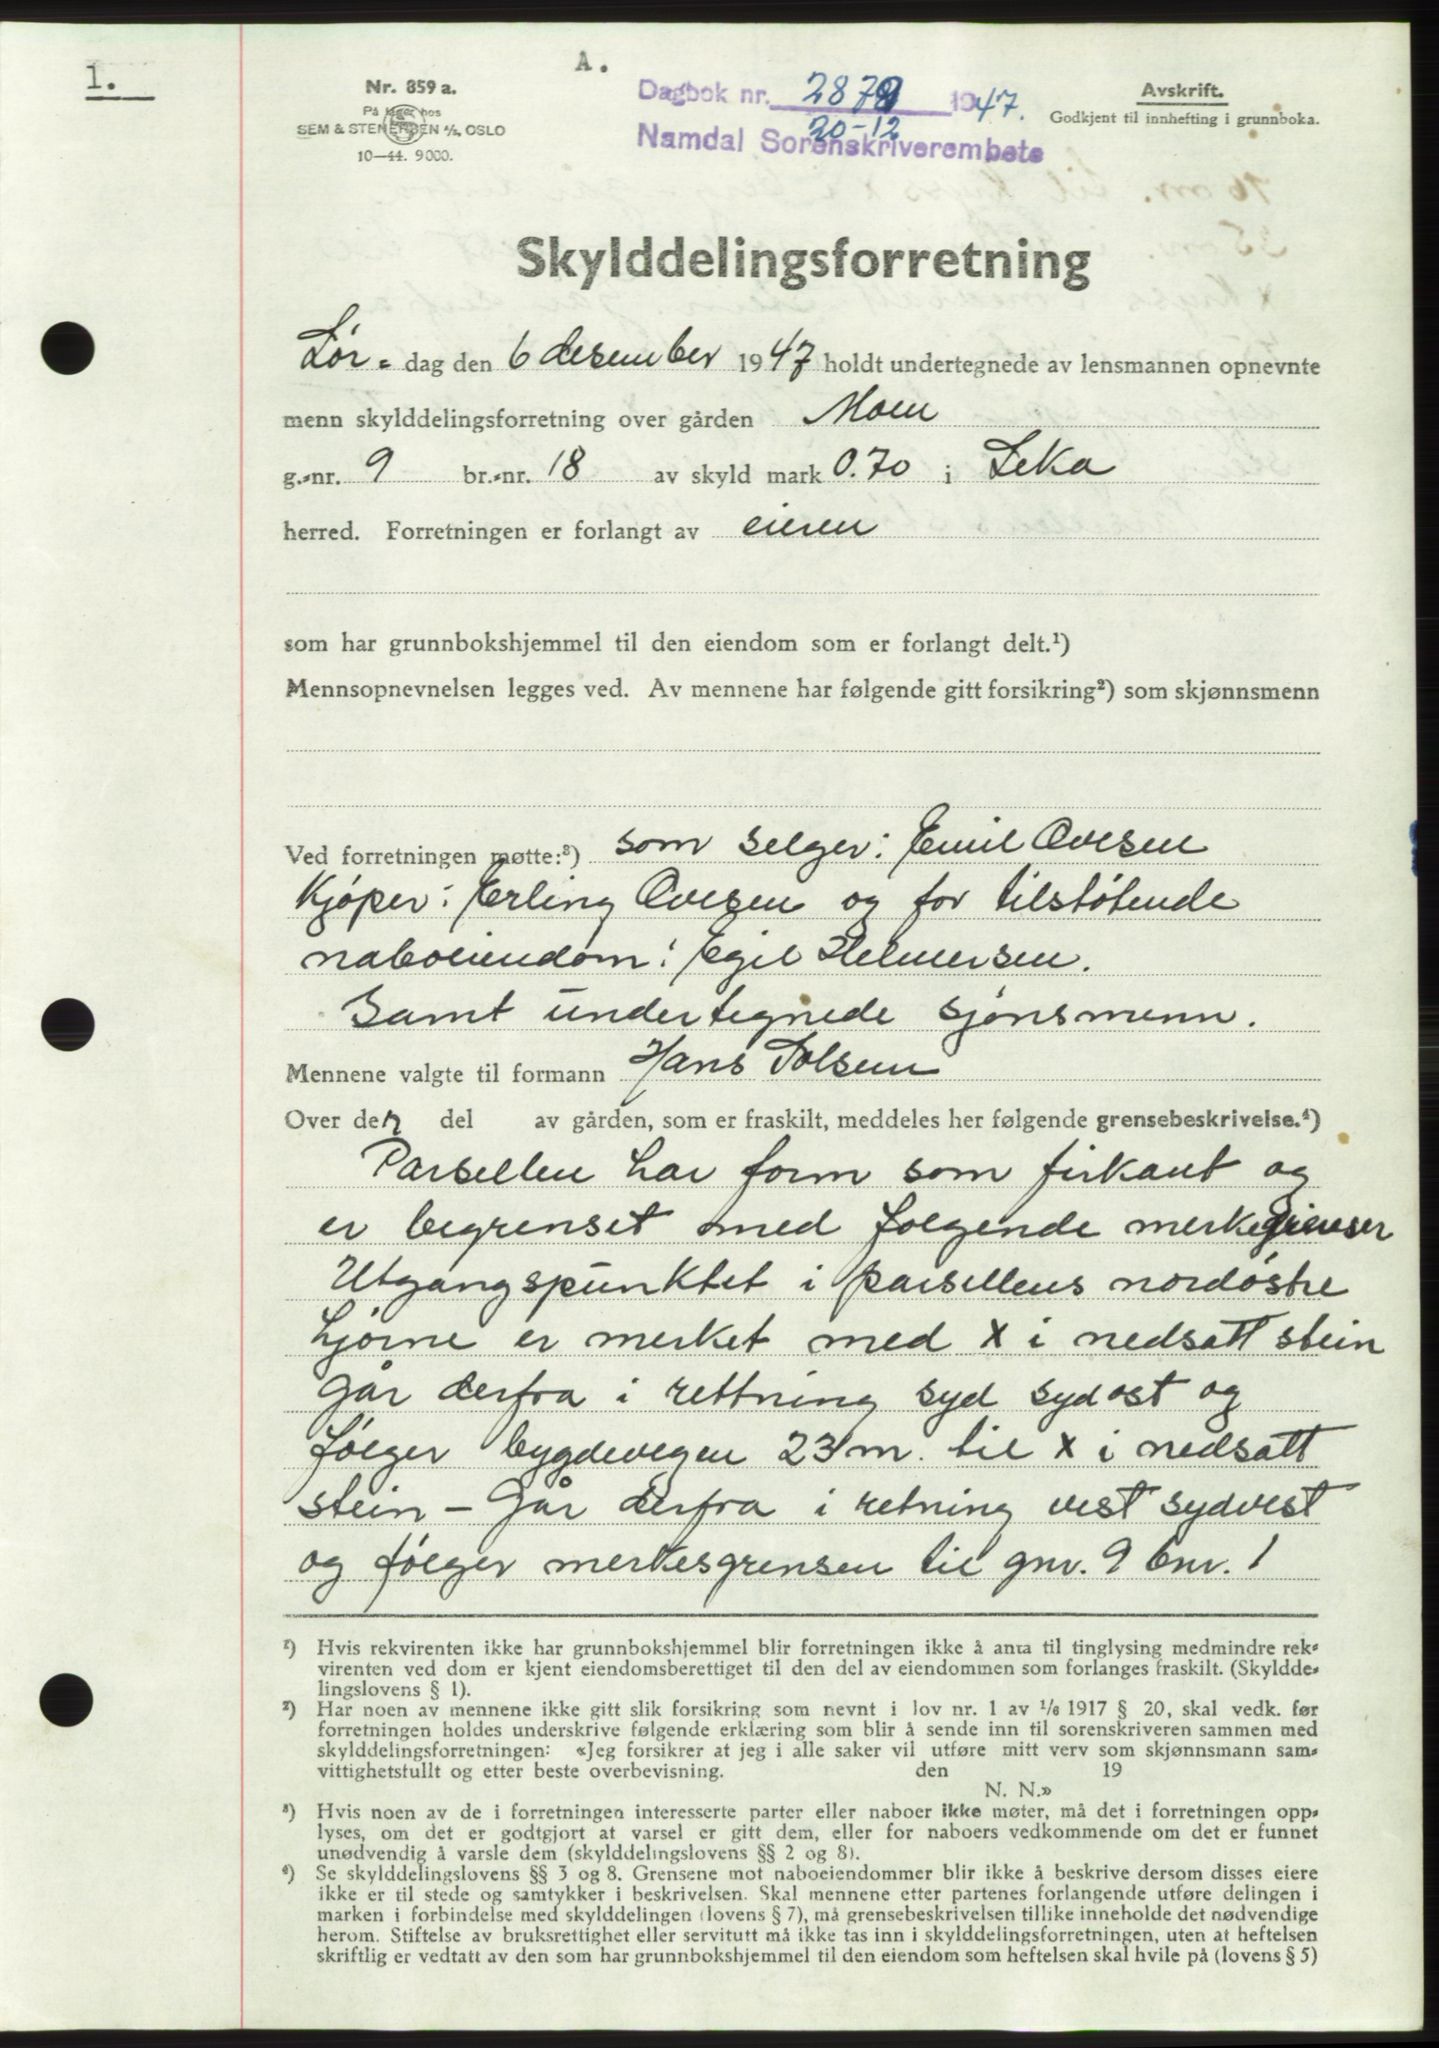 1.
A.
Nr. 859 a.
På lager hos
SEM & STENERSEN A/S, OSLO
10—44. 9000.
Dagbok nr. 2879 1947.
20-12
Namdal Sorenskriverembete
Avskrift.
Godkjent til innhefting i grunnboka.
Skylddelingsforretning
Lør- dag den 6 desember 1947 holdt undertegnede av lensmannen opnevnte
menn skylddelingsforretning over gården Moen
g.-nr. 9 br.-nr. 18 av skyld mark 0.70 i Leka
herred. Forretningen er forlangt av eieren
som har grunnbokshjemmel til den eiendom som er forlangt delt.¹)
Mennsopnevnelsen legges ved. Av mennene har følgende gitt forsikring²) som skjønnsmenn
Ved forretningen møtte:³) som selger: Emil Ovesen
Kjøper: Erling Ovesen og for tilstøtende
naboeiendom: Egil Helmersen.
Samt undertegnede sjønsmenn.
Mennene valgte til formann Hans Solsem
Over den del av gården, som er fraskilt, meddeles her følgende grensebeskrivelse.⁴)
Parsellen har form som firkant og
er begrenset med følgende merkegrenser
Utgangspunktet i parsellens nordøstre
hjørne er merket med x i nedsatt stein
Går derfra i rettning syd sydost og
følger bygdevegen 23 m. til x i nedsatt
stein – Går derfra i retning vest sydvest
og følger merkesgrensen til gnr. 9 bnr. 1
¹) Hvis rekvirenten ikke har grunnbokshjemmel blir forretningen ikke å anta til tinglysing medmindre rek-
virenten ved dom er kjent eiendomsberettiget til den del av eiendommen som forlanges fraskilt. (Skyldde-
lingslovens § 1).
²) Har noen av mennene ikke gitt slik forsikring som nevnt i lov nr. 1 av 1/6 1917 § 20, skal vedk. før
forretningen holdes underskrive følgende erklæring som blir å sende inn til sorenskriveren sammen med
skylddelingsforretningen: «Jeg forsikrer at jeg i alle saker vil utføre mitt verv som skjønnsmann sam-
vittighetsfullt og etter beste overbevisning. den 19
N. N.»
³) Hvis noen av de i forretningen interesserte parter eller naboer ikke møter, må det i forretningen opp-
lyses, om det er godtgjort at varsel er gitt dem, eller for naboers vedkommende om det er funnet
unødvendig å varsle dem (skylddelingslovens §§ 2 og 8).
⁴) Se skylddelingslovens §§ 3 og 8. Grensene mot naboeiendommer blir ikke å beskrive dersom disses eiere
ikke er til stede og samtykker i beskrivelsen. Skal mennene etter partenes forlangende utføre delingen i
marken i forbindelse med skylddelingen (lovens § 7), må grensebeskrivelsen tillike inneholde det nødvendige
herom. Stiftelse av bruksrettighet eller servitutt må ikke tas inn i skylddelingsforretningen, uten at heftelsen
skriftlig er vedtatt av den som har grunnbokshjemmel til den eiendom som heftelsen skal hvile på (lovens § 5)